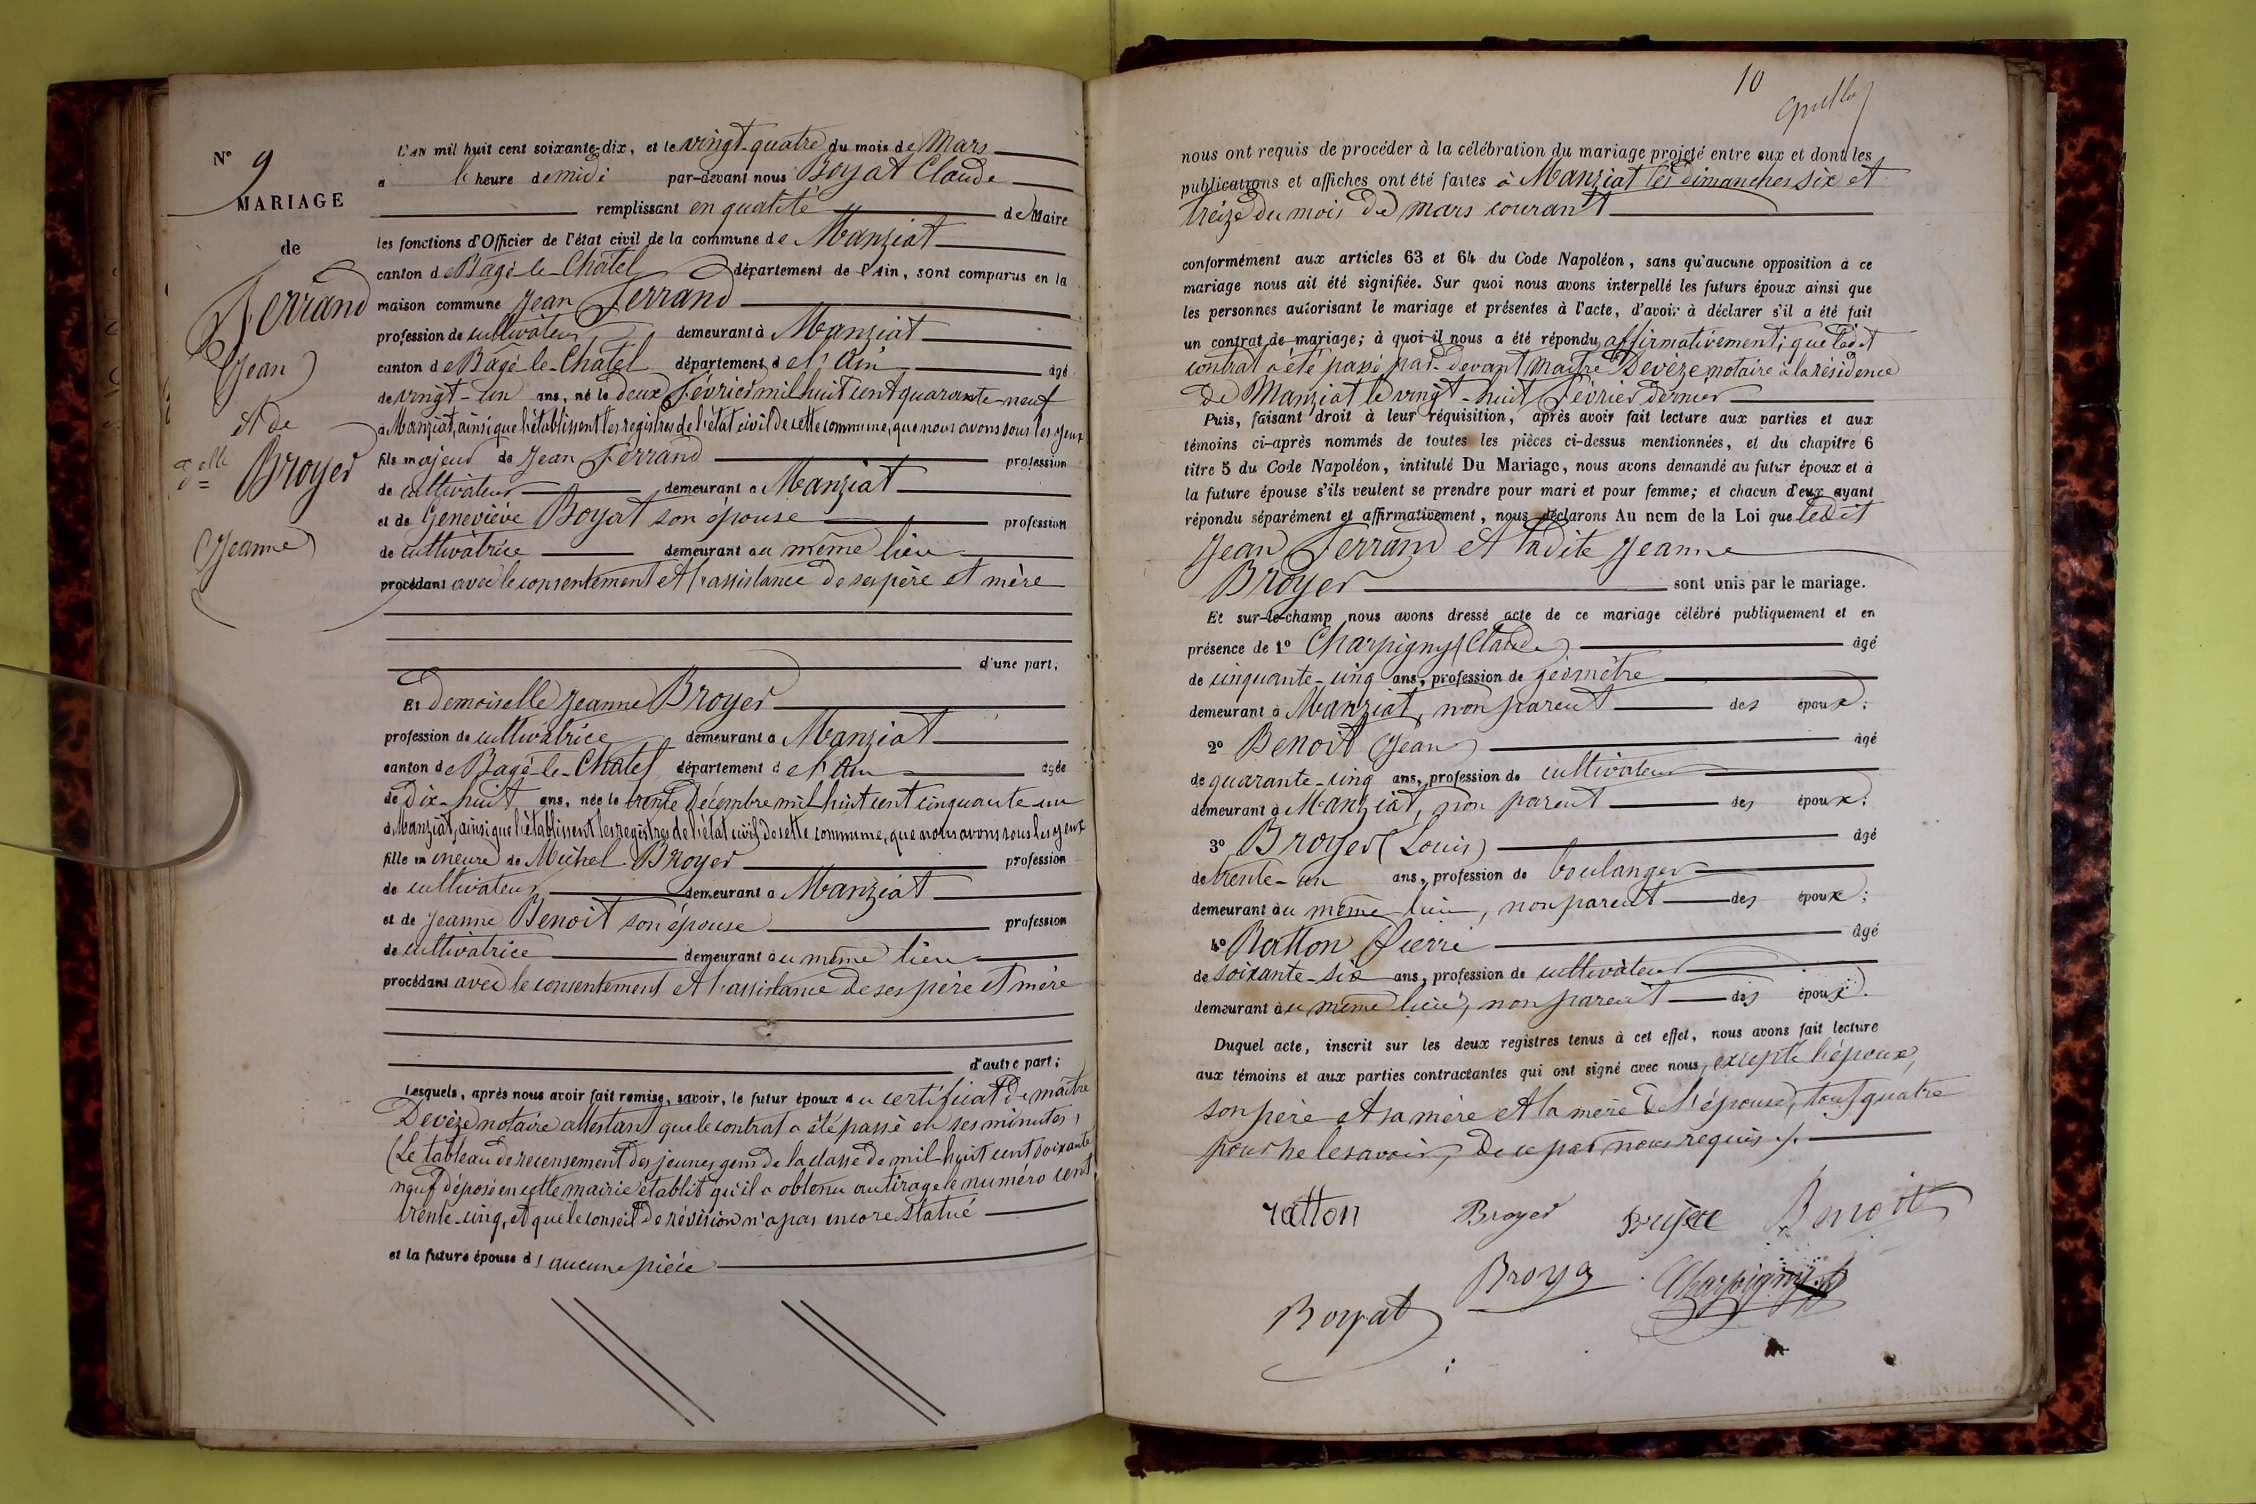 N° 9
MARIAGE
de
Ferrand
(Jean)
et de
delle
Broyer
(Jeanne)
L'AN mil huit cent soixante-dix, et le vingt-quatre du mois de Mars
a l heure de midi par-devant nous Boyat Claude
remplissant en qualité de Maire
les fonctions d'Officier de l'état civil de la commune de Manziat
canton de Bagé-le-Châtel département de l'Ain, sont comparus en la
maison commune Jean Ferrand
profession de cultivateur demeurant à Manziat
canton de Bagé-le-Châtel département de l'Ain âgé
de vingt-un ans, né le deux Février mil huit cent quarante-neuf
à Manziat, ainsi que l'établissent les registres de l'état civil de cette commune, que nous avons sous les yeux
fils majeur de Jean Ferrand profession
de cultivateur demeurant à Manziat
et de Geneviève Boyat son épouse profession
de cultivatrice demeurant au même lieu
procédant avec le consentement et l'assistance de ses père et mère
d'une part;
Et demoiselle Jeanne Broyer
profession de cultivatrice demeurant à Manziat
canton de Bagé-le-Châtel département de l'Ain âgée
de dix-huit ans, née le trente Décembre mil huit cent cinquante-un
à Manziat, ainsi que l'établissent les registres de l'état civil de cette commune, que nous avons sous les yeux
fille mineure de Michel Broyer profession
de cultivateur demeurant à Manziat
et de Jeanne Benoit son épouse profession
de cultivatrice demeurant au même lieu
procédant avec le consentement et l'assistance de ses père et mère
d'autre part;
Lesquels, après nous avoir fait remise, savoir, le futur époux du certificat de maître
Devèze notaire attestant que le contrat a été passé en ses minutes,
(Le tableau de recensement des jeunes gens de la classe de mil huit cent soixante
neuf déposé en cette mairie établit qu'il a obtenu au tirage le numéro cent
trente-cinq, et que le conseil de révision n'a pas encore statué
et la future épouse d'aucune pièce
10
nous ont requis de procéder à la célébration du mariage projeté entre eux et dont les
publications et affiches ont été faites à Manziat les dimanches six et
treize du mois de mars courant
conformément aux articles 63 et 64 du Code Napoléon, sans qu'aucune opposition à ce
mariage nous ait été signifiée. Sur quoi nous avons interpellé les futurs époux ainsi que
les personnes autorisant le mariage et présentes à l'acte, d'avoir à déclarer s'il a été fait
un contrat de mariage; à quoi il nous a été répondu affirmativement; que ledit
contrat a été passé par-devant maître Devèze notaire à la résidence
de Manziat le vingt-huit Février dernier
Puis, faisant droit à leur réquisition, après avoir fait lecture aux parties et aux
témoins ci-après nommés de toutes les pièces ci-dessus mentionnées, et du chapitre 6
titre 5 du Code Napoléon, intitulé Du Mariage, nous avons demandé au futur époux et à
la future épouse s'ils veulent se prendre pour mari et pour femme; et chacun d'eux ayant
répondu séparément et affirmativement, nous déclarons Au nom de la Loi que ledit
Jean Ferrand et ladite Jeanne
Broyer sont unis par le mariage.
Et sur-le-champ nous avons dressé acte de ce mariage célébré publiquement et en
présence de 1° Charpigny (Claude) âgé
de cinquante-cinq ans, profession de géomètre
demeurant à Manziat, non parent des époux;
2° Benoit (Jean) âgé
de quarante-cinq ans, profession de cultivateur
demeurant à Manziat, non parent des époux;
3° Broyer (Louis) âgé
de trente-un ans, profession de boulanger
demeurant au même lieu, non parent des époux;
4° Ratton Pierre âgé
de soixante-six ans, profession de cultivateur
demeurant au même lieu, non parent des époux.
Duquel acte, inscrit sur les deux registres tenus à cet effet, nous avons fait lecture
aux témoins et aux parties contractantes qui ont signé avec nous, excepté l'époux,
son père et sa mère et la mère de l'épouse, tous quatre
pour ne le savoir, de ce par nous requis ./.
ratton Broyer Benoit
Broyer Charpigny
Boyat